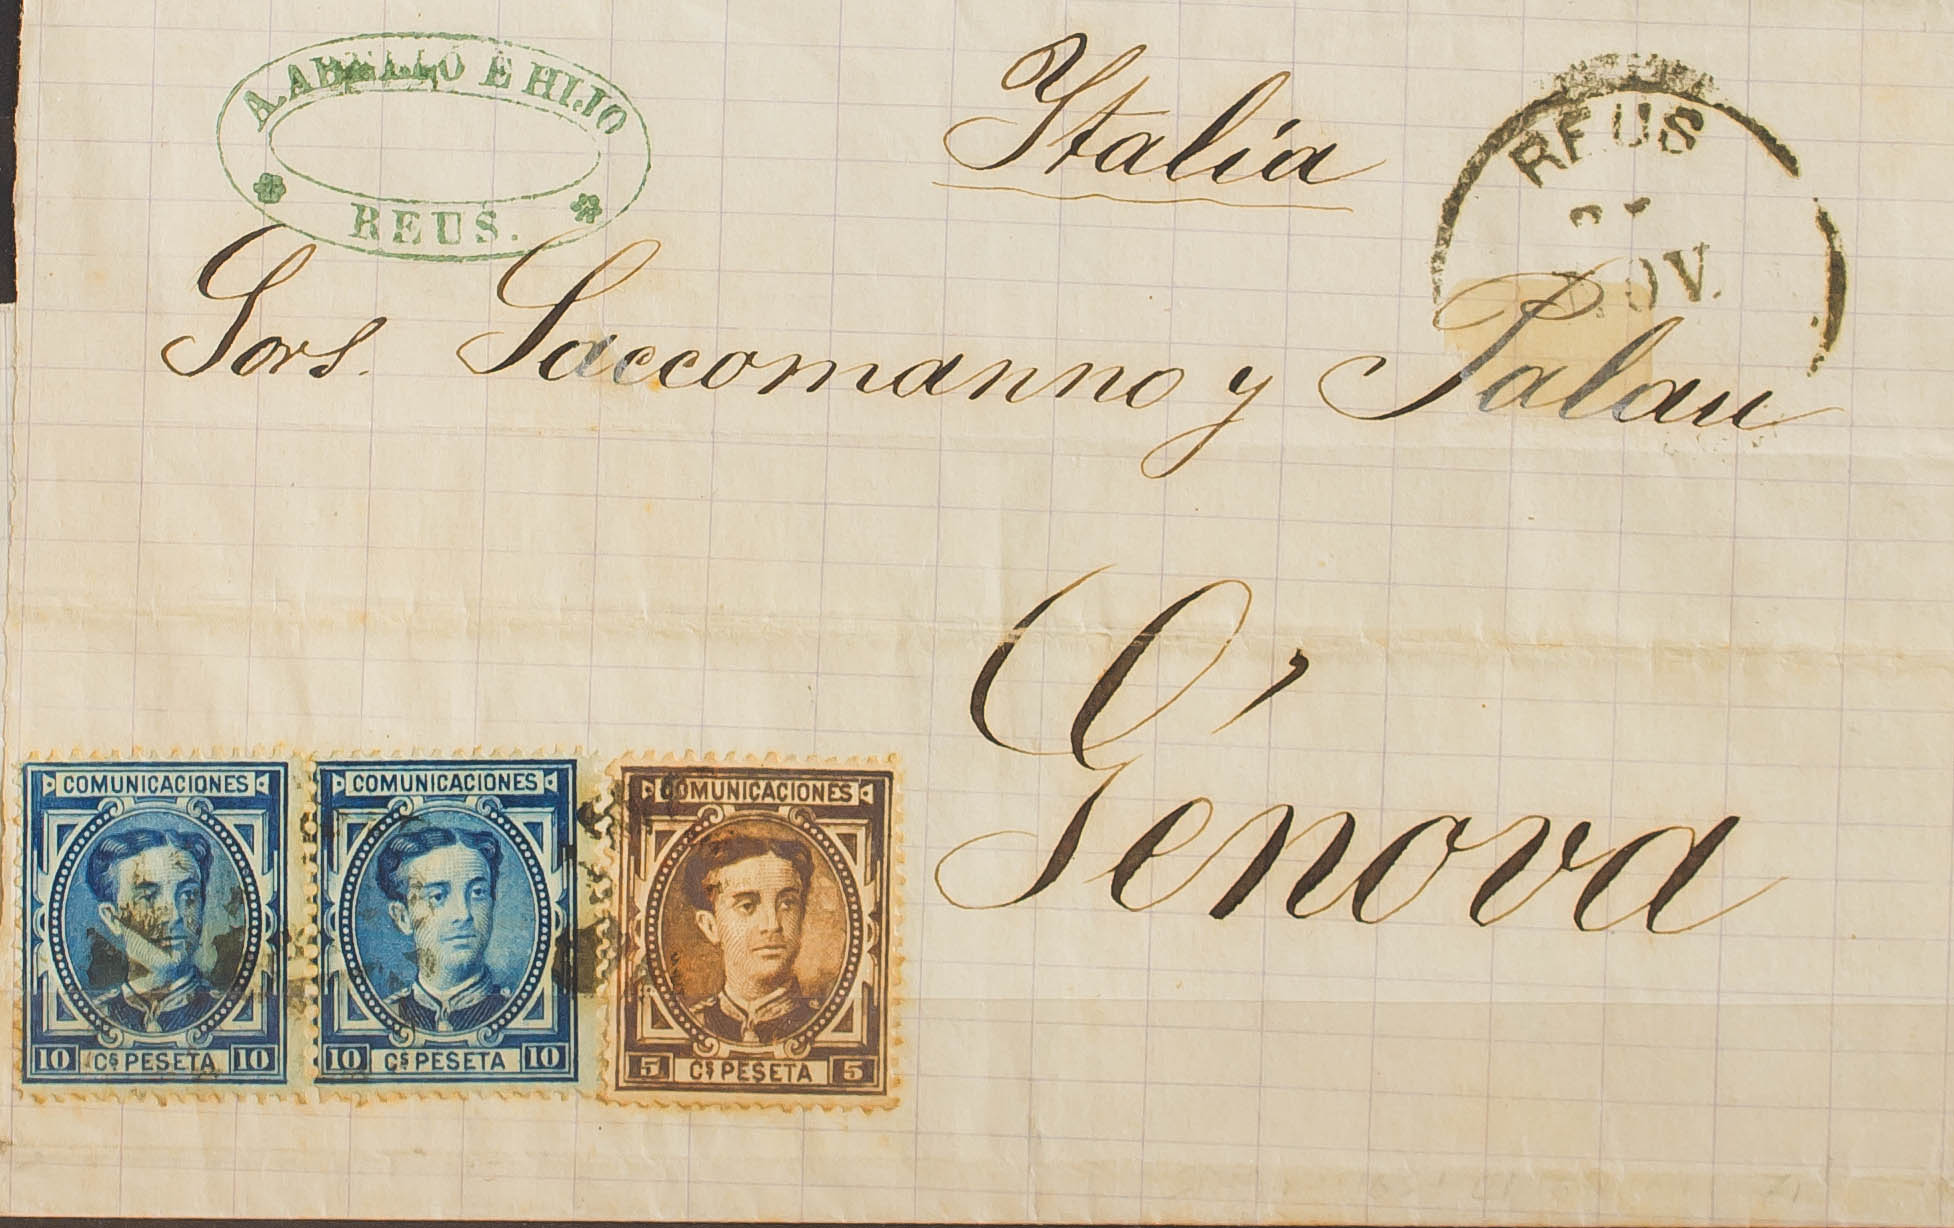 A. ABELLÓ É HIJO
REUS.
Italia
REUS
NOV.
Sors. Saccomanno y Palau
Génova
COMUNICACIONES
10 Cs PESETA 10
COMUNICACIONES
10 Cs PESETA 10
COMUNICACIONES
5 Cs PESETA 5